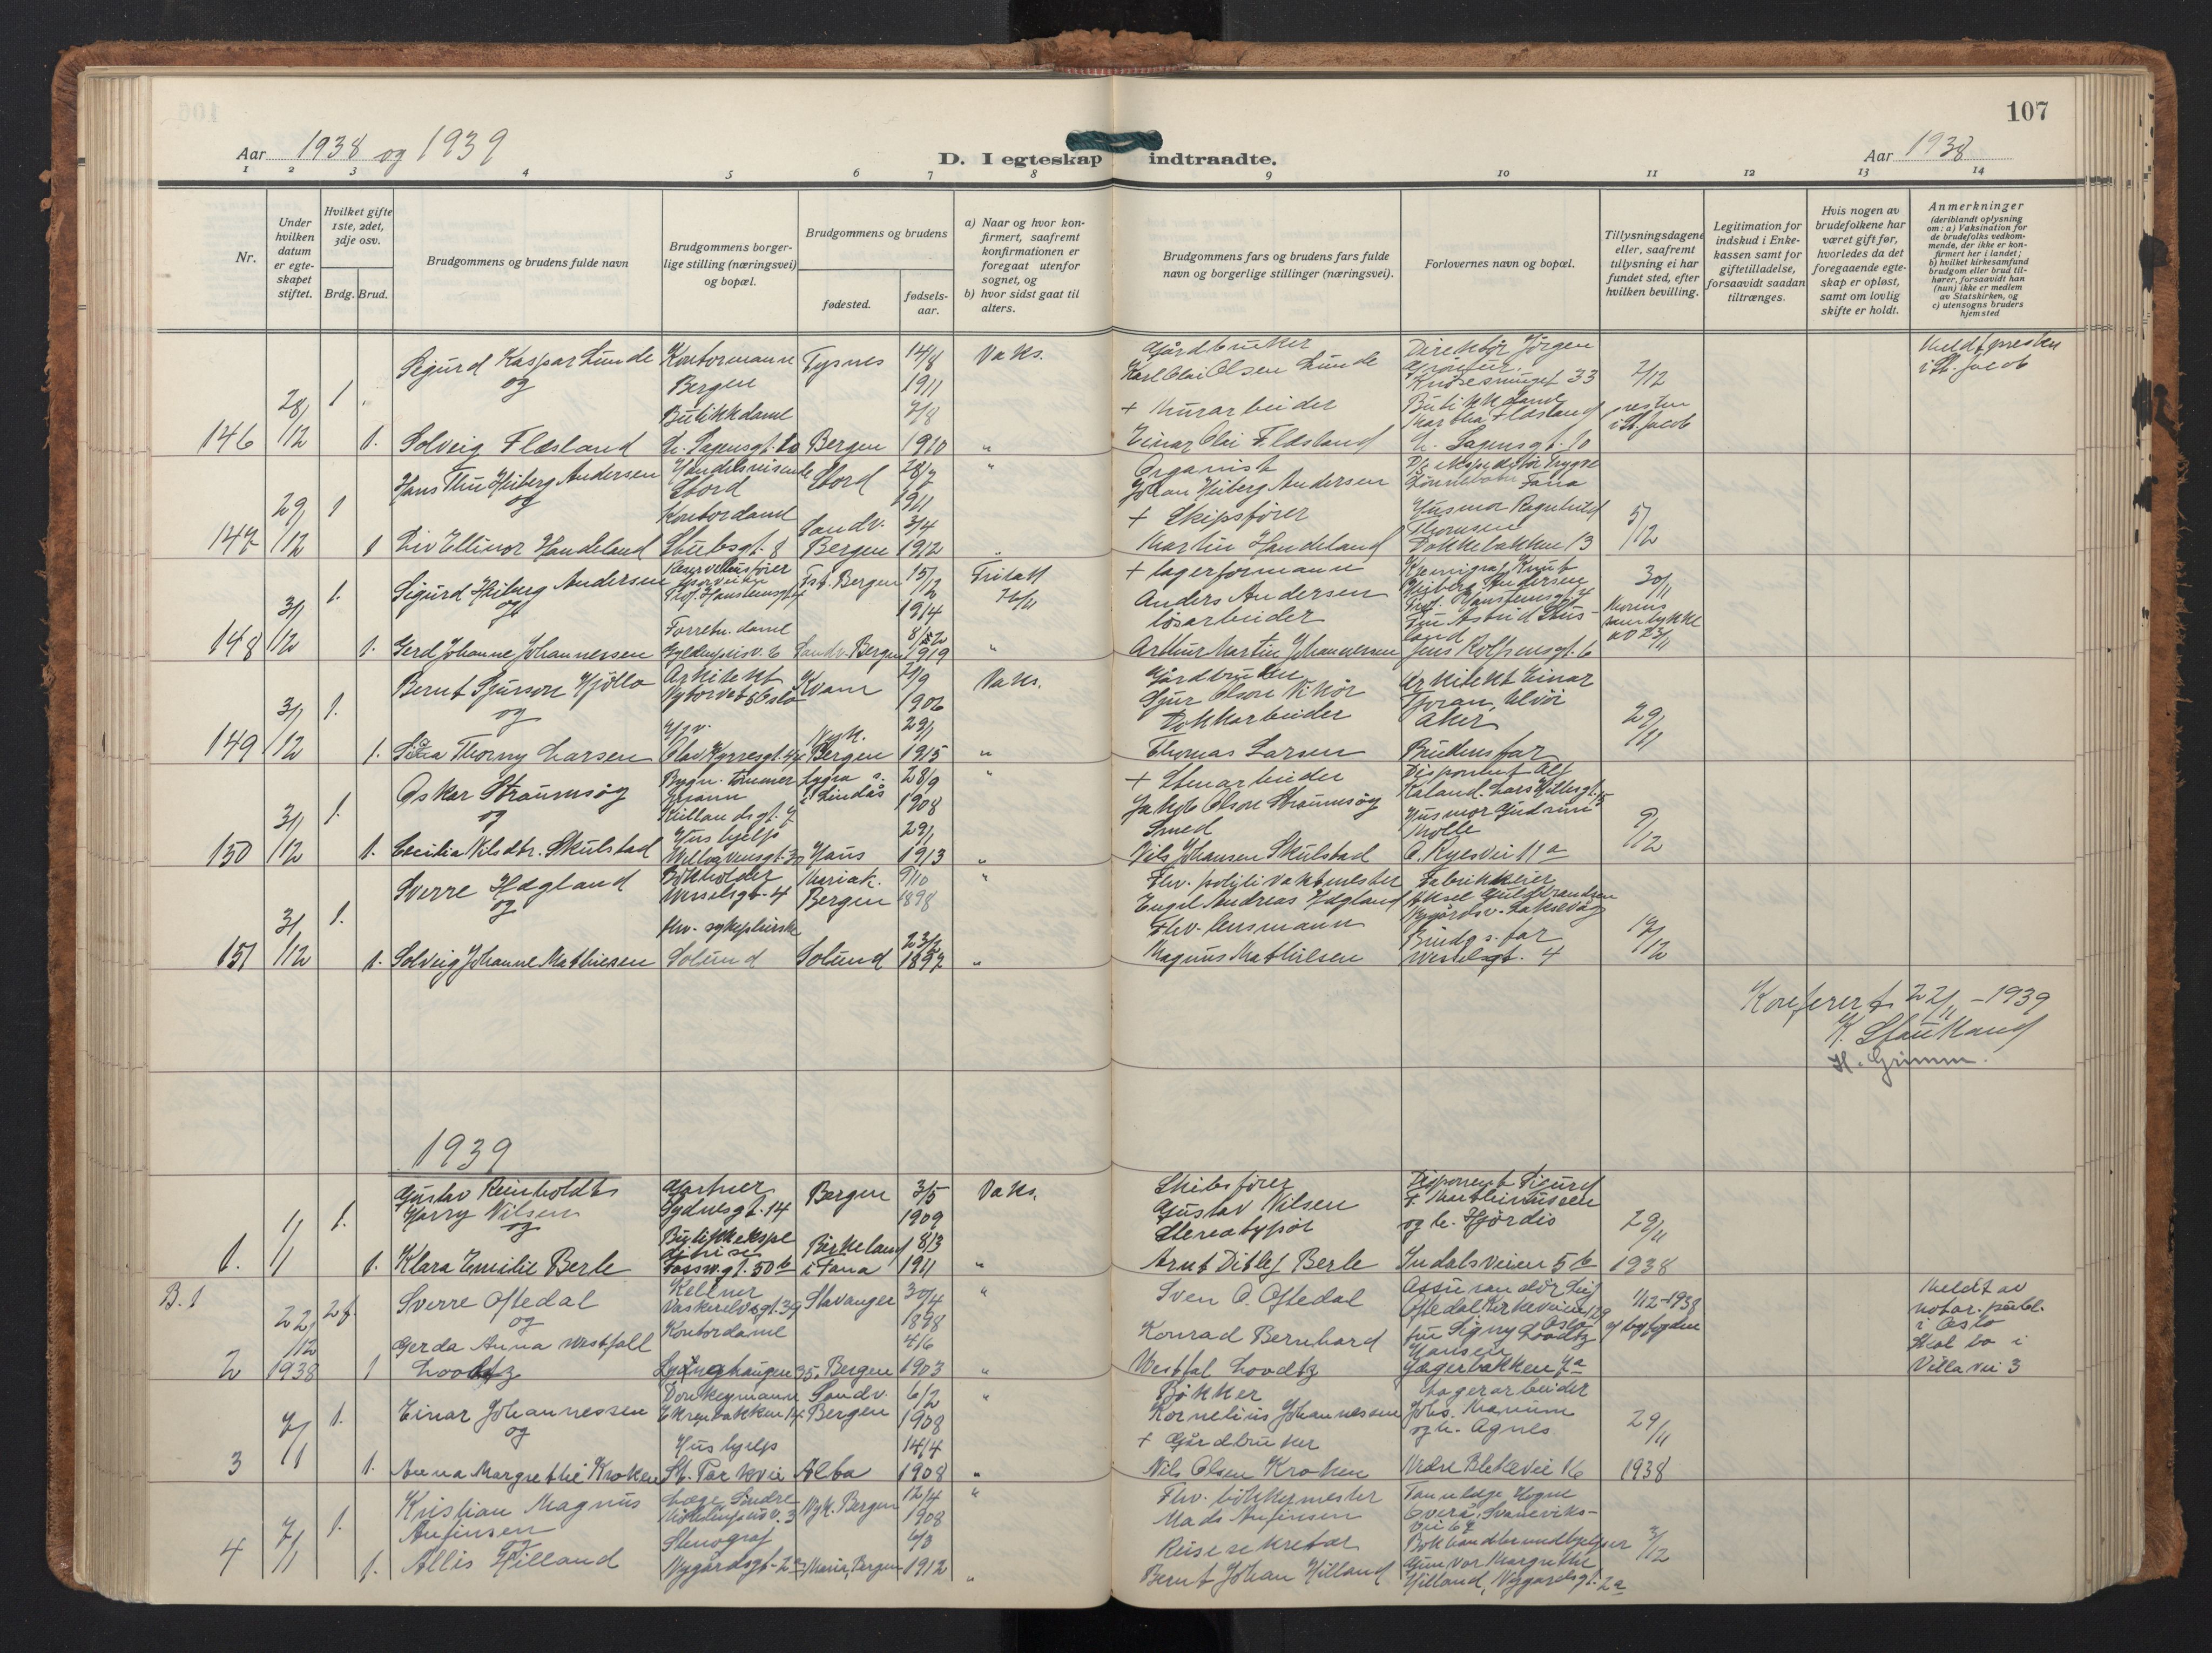 107
Aar 1938 og 1939
D. I egteskap indtraadte.
Aar 1938
1 2 3 4 5 6 7 8 9 10 11 12 13 14
Nr.
Under hvilken datum er egteskapet stiftet.
Hvilket gifte 1ste, 2det, 3dje osv.
Brdg. Brud.
Brudgommens og brudens fulde navn
Brudgommens borgerlige stilling (næringsvei) og bopæl.
Brudgommens og brudens
fødested.
fødselsaar.
a) Naar og hvor konfirmert, saafremt konfirmationen er foregaat utenfor sognet, og
b) hvor sidst gaat til alters.
Brudgommens fars og brudens fars fulde navn og borgerlige stillinger (næringsvei).
Forlovernes navn og bopæl.
Tillysningsdagene eller, saafremt tillysning ei har fundet sted, efter hvilken bevilling.
Legitimation for indskud i Enkekassen samt for giftetilladelse, forsaavidt saadan tiltrænges.
Hvis nogen av brudefolkene har været gift før, hvorledes da det foregaaende egteskap er opløst, samt om lovlig skifte er holdt.
Anmerkninger
(deriblandt oplysning om: a) Vaksination for de brudefolks vedkommende, der ikke er konfirmert her i landet; b) hvilket kirkesamfund brudgom eller brud tilhører, forsaavidt han (hun) ikke er medlem av Statskirken, og c) utensogns bruders hjemsted
146 28/12 1. 1.
Sigurd Kaspar Lunde
og
Solveig Flæsland
Kontormann
Bergen
Butikkdame
L. Sagensgt. 10
Tysnes 14/8 1911
Bergen 7/8 1910
Vaks.
Gårdbruker
Karl Olai Olsen Lunde
+ Murarbeider
Einar Olai Flæsland
Direktör Jörgen
Knösesmuget 33
Butikkdame
Martha Flæsland
L. Sagensgt. 10
2/12
presten
i St. Jacob
Meldt presten
i St. Jacob
147 29/12 1 1
Hans Thue Heiberg Andersen
og
Liv Ellinor Handeland
Handelsreisende
Stord
Kontordame
Stubsgt. 8
Stord 28/7 1911
Sandv.
Bergen 3/4 1912
Organist
Johan Heiberg Andersen
+ Skipsfører
Martin Handeland
Fana
Husmor Ragnhild
Thomsen
Dokkebakken 13
5/12
148 31/12 1. 1.
Sigurd Heiberg Andersen
og
Gerd Johanne Johannessen
Prof. Hansteensgt. 4
Forretn. dame
Fst. Bergen 15/12 1914
Sandv. Bergen 1919
Fritatt
+ lagerformann
Anders Andersen
løsarbeider
Arthur Martin Johannessen
Kjemigraf Knut
Heiberg Andersen
Prof. Hansteensgt. 4
Jens Rolfsensgt. 6
30/11
149 31/12 1. 1.
Bernt Sjurson Hjöllo
og
Thorny Larsen
Arkitekt
Oslo
Olav Kyrresgt. 44
Kvam 1906
Nyk.
Bergen 29/1 1915
Vaks.
Gårdbruker
Sjur Olson Vikör
Dokkarbeider
Thomas Larsen
Arkitekt Einar
Aker
Brudens far
29/11
150 31/12 1. 1.
Oskar Straumsøy
og
Cecilia Nilsdtr. Skulstad
Kiellandsgt. 7
Hushjelp
Lygra s.
i Lindås 28/9 1908
Haus 29/1 1913
+ Stenarbeider
Jakob Olson Straumsøy
Smed
Nils Johansen Skulstad
Disponent Alf
Kaland. Lars Hillesgt. 15
Husmor Gudrun
Molle
O. Ryesvei 11a
9/12
151 31/12 1. 1.
Sverre Hægland
og
Solveig Johanne Mathiesen
Bokholder
Wesselsgt. 4
fhv. sykepleierske
Solund
Mariak.
Bergen 9/10 1898
Solund 23/2 1897
Fhv. politivaktmester
Engel Andreas Hægland
Fhv. lensmann
Magnus Mathiesen
Fabrikkeier
Aksel Guldbrandsen
Nygårdsv. Laksevåg
Brudg s. far
Wesselsgt. 4
12/12
Konferert 22/11 - 1939
K. Staukland
H. Grimm.
1939
1. 1/1 1. 1.
Gustav Reinholdts
Harry Nilsen
og
Klara Emilie Berle
Gartner
Sydnesgt. 14
Butikkekspeditrise
Fossw.gt. 50 b
Bergen 3/5 1909
Birkeland
i Fana 18/3 1911
Vaks.
Skibsfører
Gustav Nilsen
Stereotypör
Arnt Ditlef Berle
Disponent Sigurd
F. Mathiussen
og h. Hjördis
Indalsveien 5 b
29/11
1938
B.1
2 22/12 1938 2d. 1
Sverre Oftedal
og
Gerda Anna Westfall
Loodtz
Kellner
Vaskerelvsgt. 39
Kontordame
Lyderhaugen 35.
Stavanger 30/4 1898
Bergen 4/6 1903
Sven O. Oftedal
Konrad Bernhard
Westfal Loodtz
Assurandör Leif
Oftedal Kirkeveien 129
Oslo
fru Signy Loodtz
Hansen
Jægerbakken 7a
1/12-1938
av byfogden
Meldt av
notar. publ.
i Oslo
Skal bo i
Villavei 3
3 7/1 1. 1.
Einar Johannessen
og
Anna Margrethe Kroken
Donkeymann
Ekrenbakken 14
Hushjelp
St. Parkvei
Sandv.
Bergen 6/2 1908
Alba 14/4 1908
Bøkker
Kornelius Johannessen
+ Gårdbruker
Nils Olsen Kroken
Lagerarbeider
Johs. Manum
og h. Agnes
Nedre Blekevei 16
29/11
1938
4 7/1 1. 1.
Kristian Magnus
Anfinsen
og
Allis Hilland
Læge Söndre
Stenograf
Nygårdsgt. 2a
Nyk. Bergen 12/4 1908
Maria, Bergen 6/3 1912
Fhv. bökkermester
Mads Anfinsen
Reisesekretær
Bernt Johan Hilland
Tannlæge Hogne
Överå, Svaneviksvei 69
Gunvor Margrethe
Hilland, Nygårdsgt. 2a
3/12